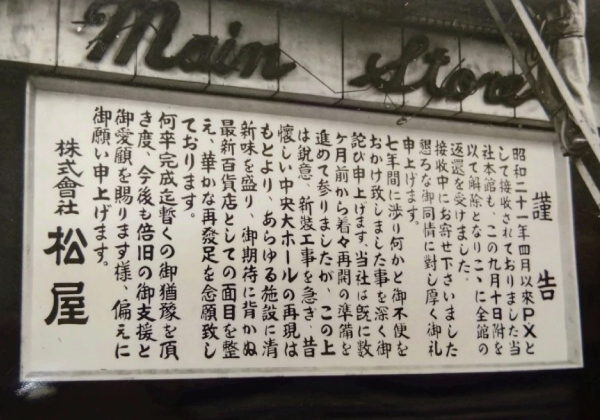 Main Store
謹告
昭和二十一年四月以來ＰＸと
して接收されておりました当
社本館も、この九月十日附を
以て解除となりこゝに全館の
返還を受けました。
接收中にお寄せ下さいました
懇ろな御同情に対し厚く御礼
申上げます。
七年間に渉り何かと御不便を
おかけ致しました事を深く御
詫び申上げます、当社は既に数
ヶ月前から着々再開の準備を
進めて参りましたが、この上
は鋭意、新裝工事を急ぎ、昔
懐しい中央大ホールの再現は
もとより、あらゆる施設に清
新味を盛り、御期待に背かぬ
最新百貨店としての面目を整
え、華かな再發足を念願致し
ております。
何卒完成迄暫くの御猶豫を頂
き度、今後も倍旧の御支援と
御愛顧を賜ります様、偏えに
御願い申上げます。
株式會社 松屋